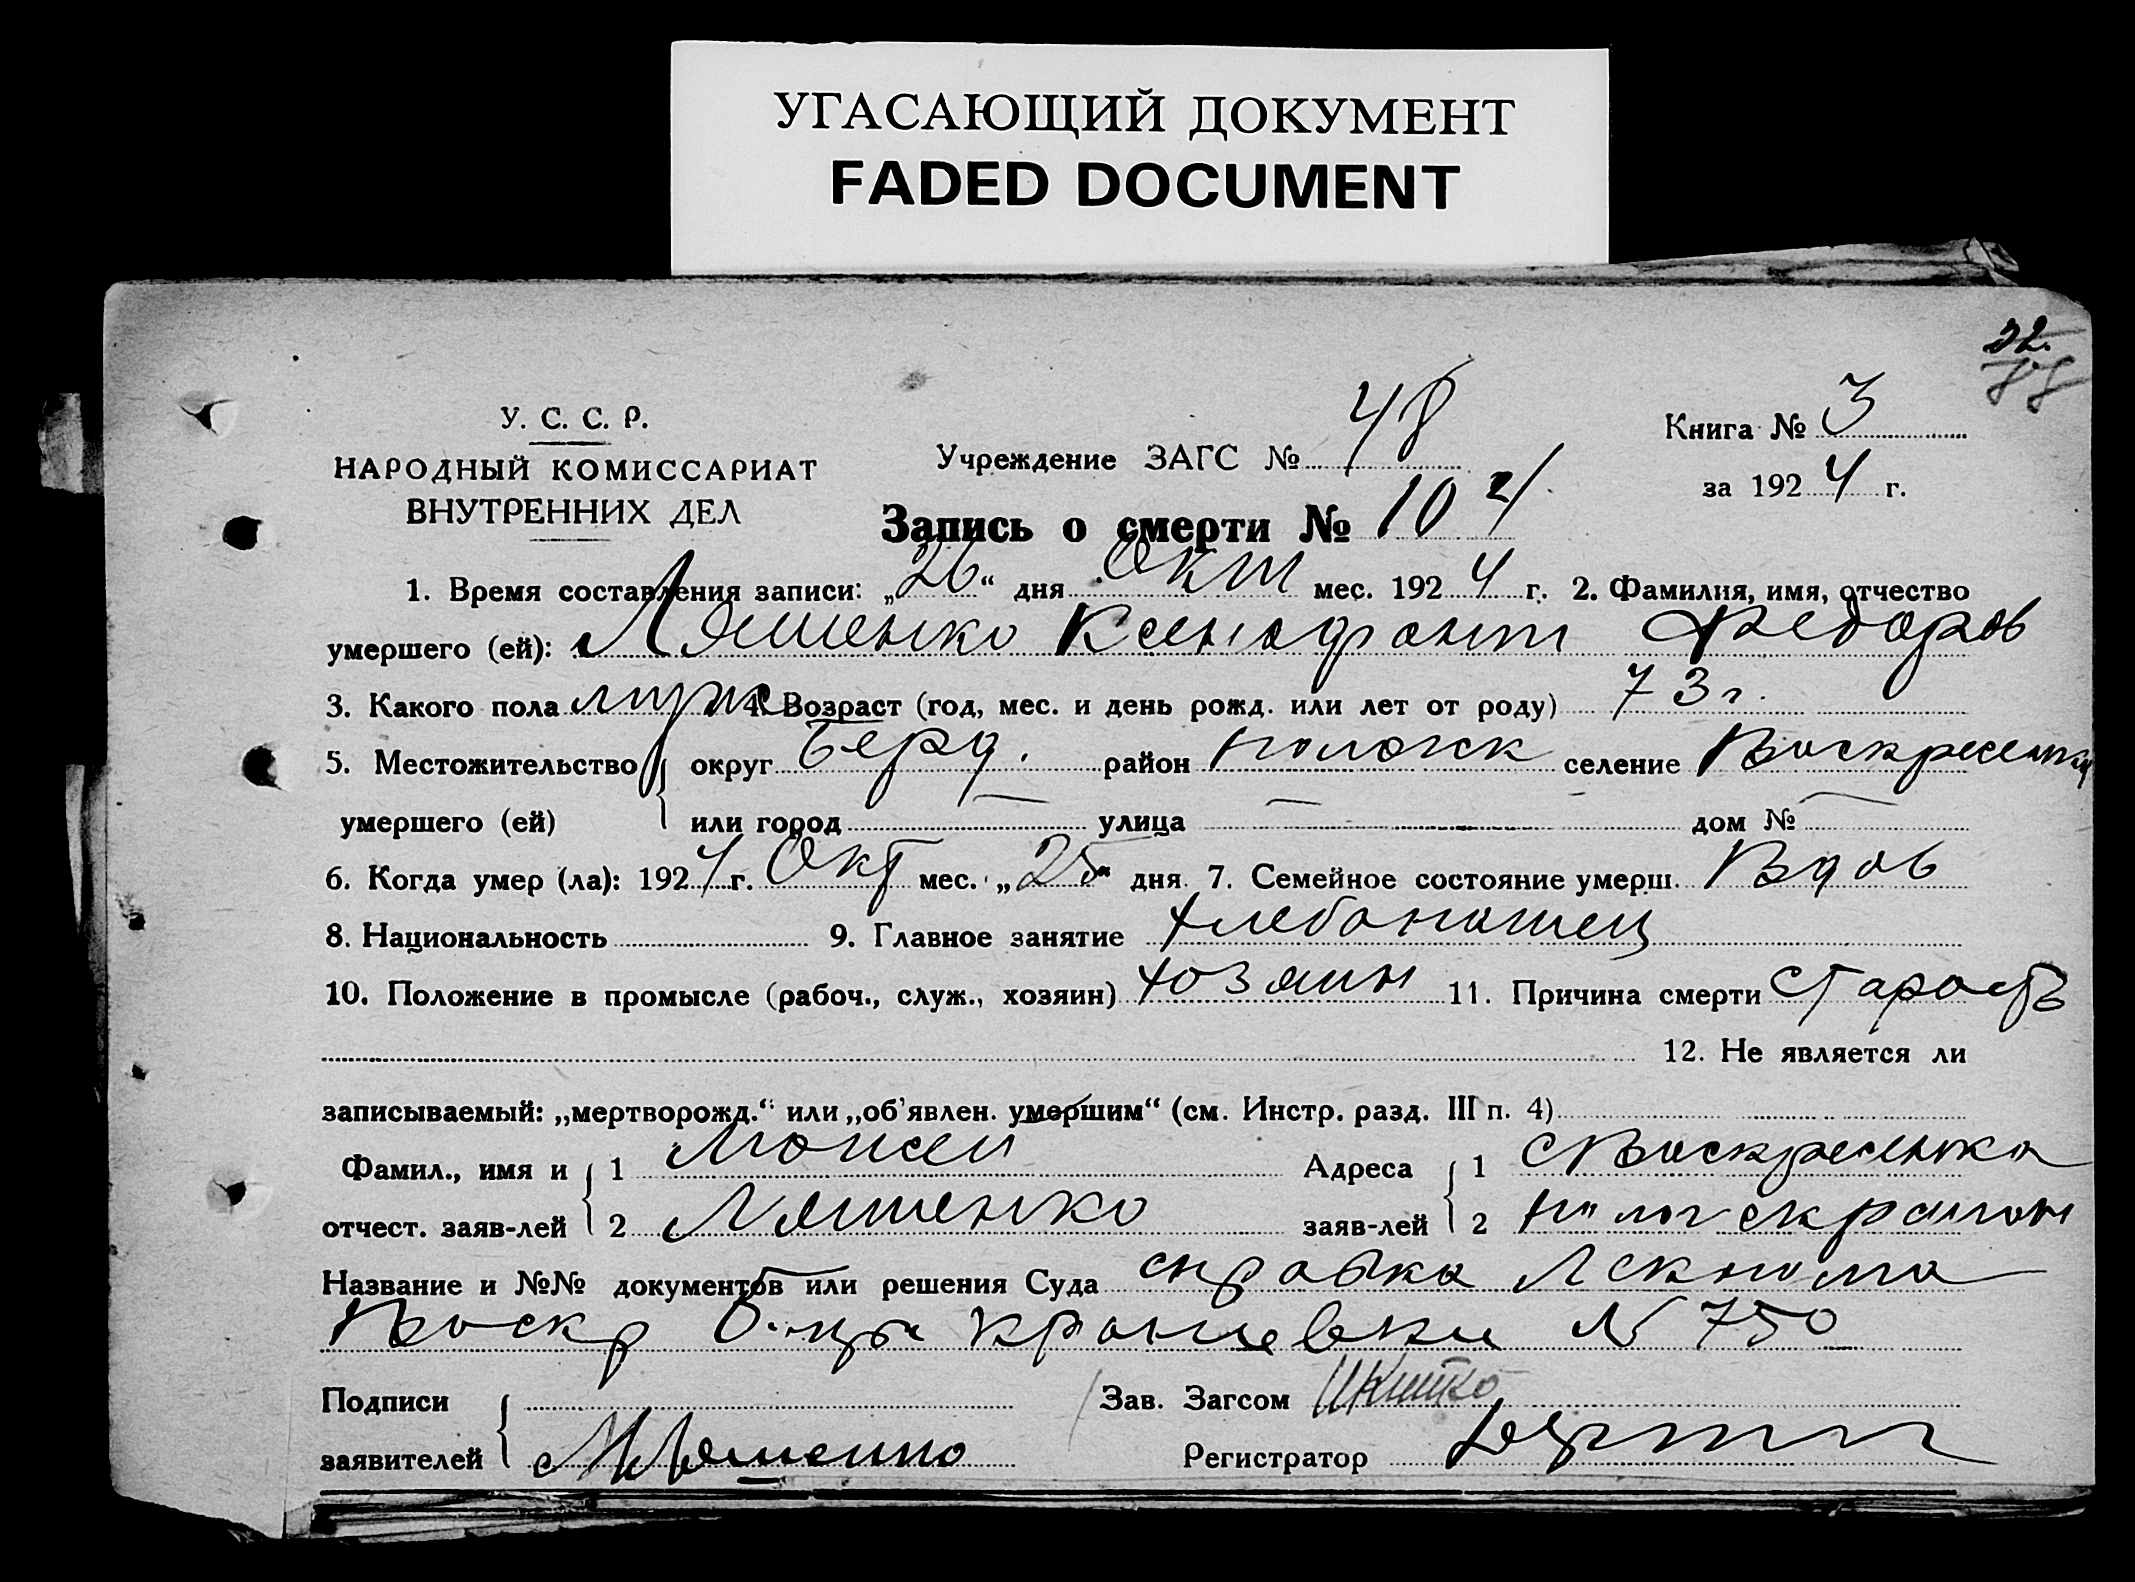 УГАСАЮЩИЙ ДОКУМЕНТ
FADED DOCUMENT
32.
У. С. С. Р.
НАРОДНЫЙ КОМИССАРИАТ
ВНУТРЕННИХ ДЕЛ
Учреждение ЗАГС № 48
Книга № 3
за 1924 г.
Запись о смерти № 104
1. Время составления записи: „26“ дня Окт мес. 1924 г. 2. Фамилия, имя, отчество
умершего (ей): Ляшенко Ксенофонт Федоров
3. Какого пола муж 4. Возраст (год, мес. и день рожд. или лет от роду) 73 г.
5. Местожительство умершего (ей) округ Берд. район Пологск селение Воскресенка
или город — улица — дом № —
6. Когда умер (ла): 1924 г. Окт мес. „25“ дня 7. Семейное состояние умерш. Вдов
8. Национальность 9. Главное занятие хлебопашец
10. Положение в промысле (рабоч., служ., хозяин) хозяин 11. Причина смерти старость
12. Не является ли
записываемый: „мертворожд.“ или „об'явлен. умершим“ (см. Инстр. разд. III п. 4)
Фамил., имя и отчест. заяв-лей 1 Моисей Адреса заяв-лей 1 с Воскресенка
2 Ляшенко 2 район
Название и №№ документов или решения Суда справка
Воскр № 750
Подписи Зав. Загсом
заявителей М Ляшенко Регистратор